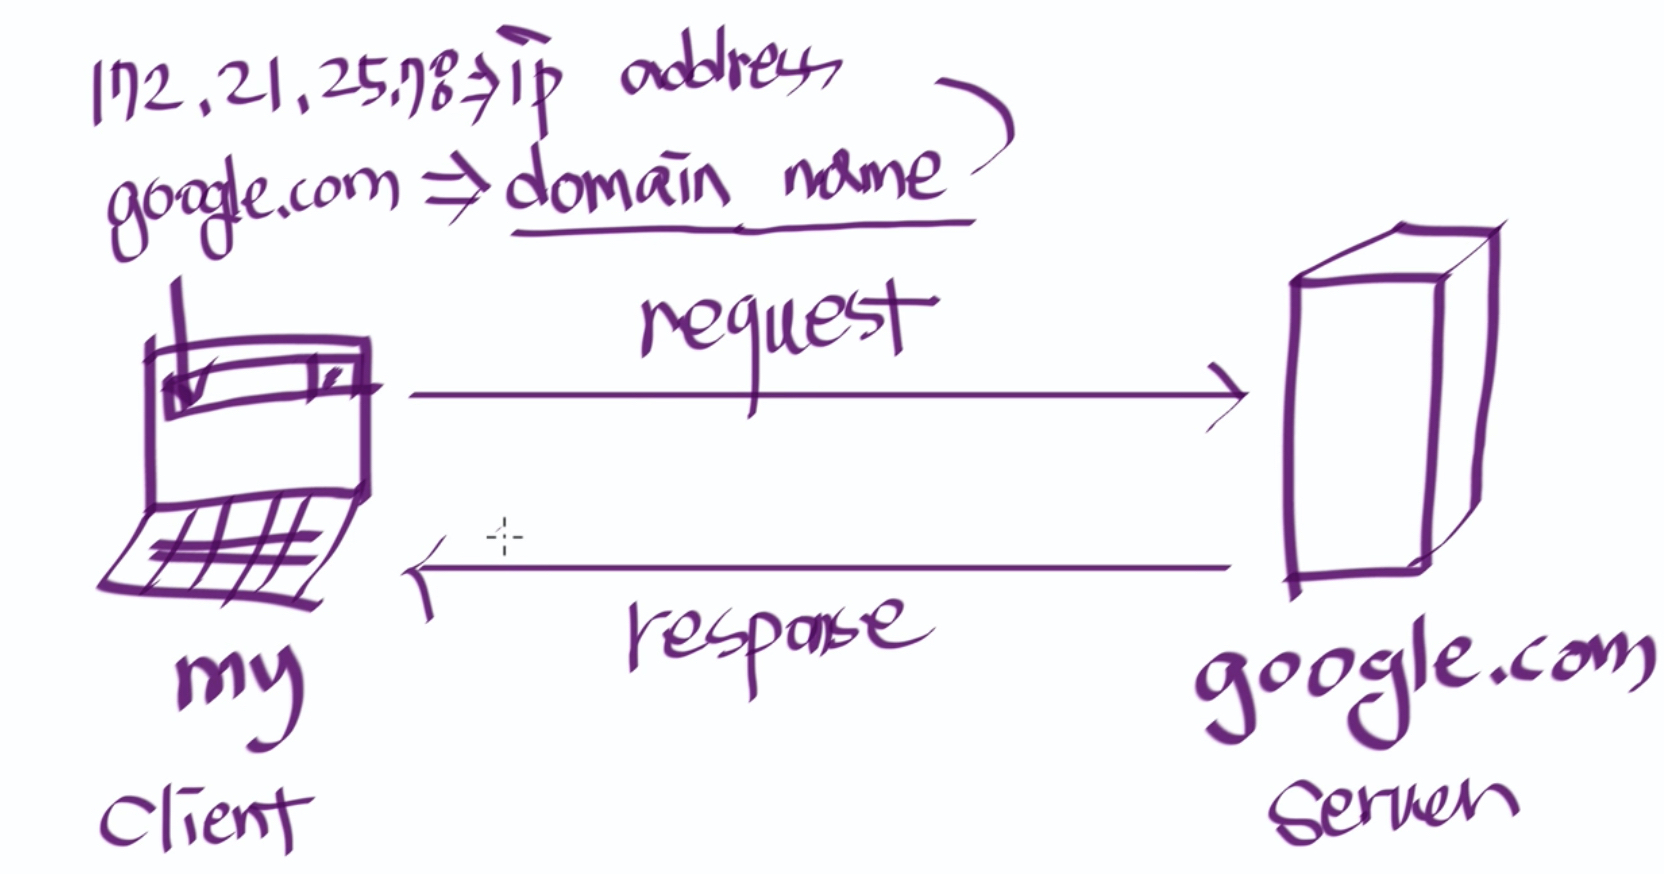 172.21.25.78⇒ip address
google.com ⇒ domain name
request
response
my
client
google.com
server